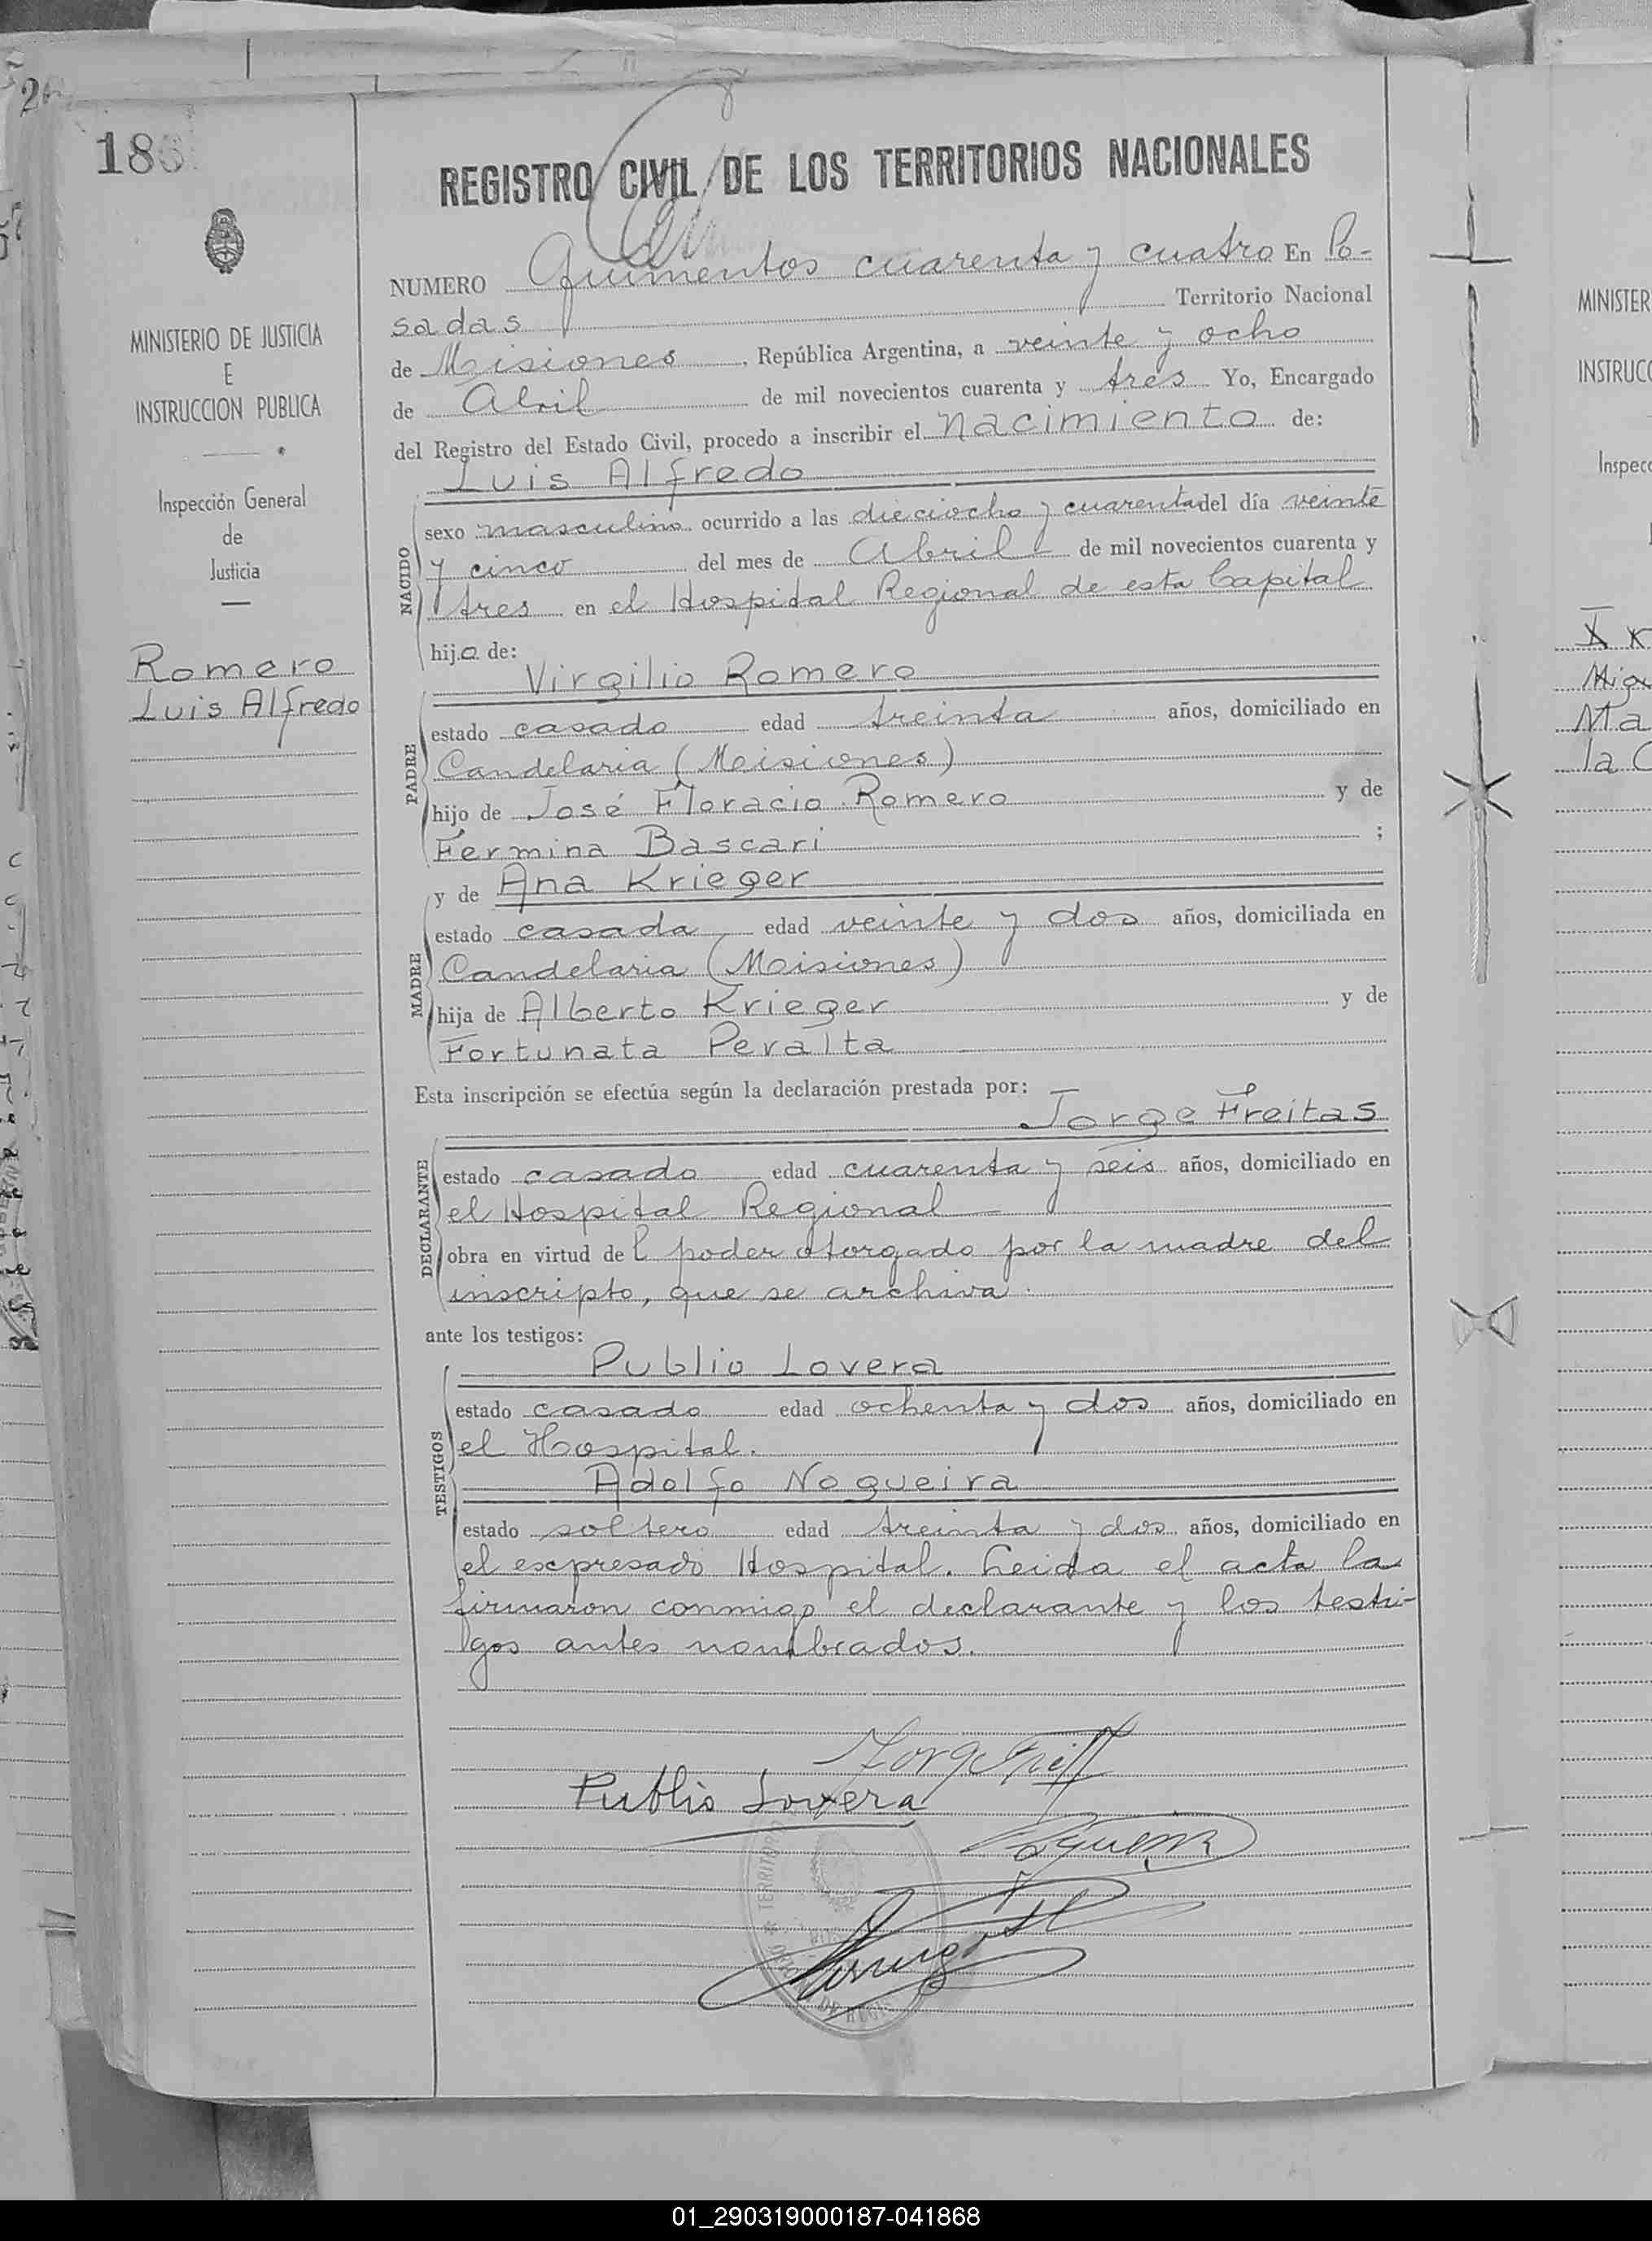 186
REGISTRO CIVIL DE LOS TERRITORIOS NACIONALES
MINISTERIO DE JUSTICIA
E
INSTRUCCION PUBLICA
Inspección General
de
Justicia
Romero
Luis Alfredo
NUMERO Quinientos cuarenta y cuatro En Po-
sadas Territorio Nacional
de Misiones, República Argentina, a veinte y ocho
de Abril de mil novecientos cuarenta y tres Yo, Encargado
del Registro del Estado Civil, procedo a inscribir el nacimiento de:
Luis Alfredo
NACIDO
sexo masculino ocurrido a las dieciocho y cuarenta del día veinte
y cinco del mes de Abril de mil novecientos cuarenta y
tres en el Hospital Regional de esta Capital
hijo de:
Virgilio Romero
PADRE
estado casado edad treinta años, domiciliado en
Candelaria (Misiones)
hijo de José Horacio Romero y de
Fermina Bascari ;
y de Ana Krieger
MADRE
estado casada edad veinte y dos años, domiciliada en
Candelaria (Misiones)
hija de Alberto Krieger y de
Fortunata Peralta
Esta inscripción se efectúa según la declaración prestada por:
Jorge Freitas
DECLARANTE
estado casado edad cuarenta y seis años, domiciliado en
el Hospital Regional
obra en virtud del poder otorgado por la madre del
inscripto, que se archiva.
ante los testigos:
Publio Lovera
TESTIGOS
estado casado edad ochenta y dos años, domiciliado en
el Hospital.
Adolfo Nogueira
estado soltero edad treinta y dos años, domiciliado en
el expresado Hospital. Leida el acta la
firmaron conmigo el declarante y los testi-
gos antes nombrados.
Publio Lovera
MINISTER
INSTRUCC
Inspecc
01_290319000187-041868